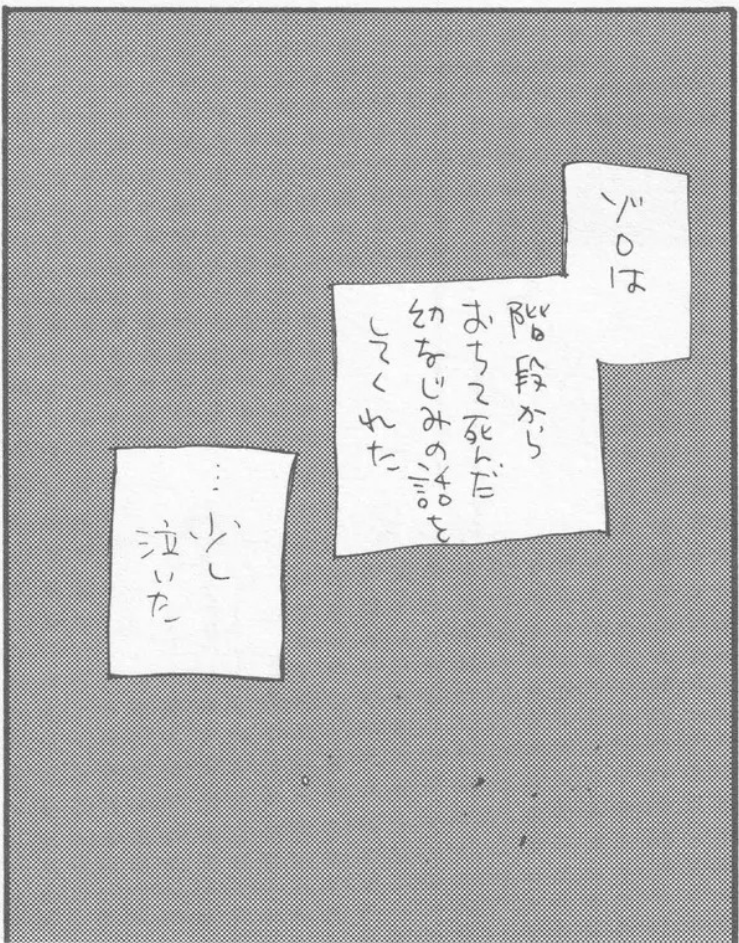 ゾロは
階段から
おちて死んだ
幼なじみの話を
してくれた
…少し
泣いた